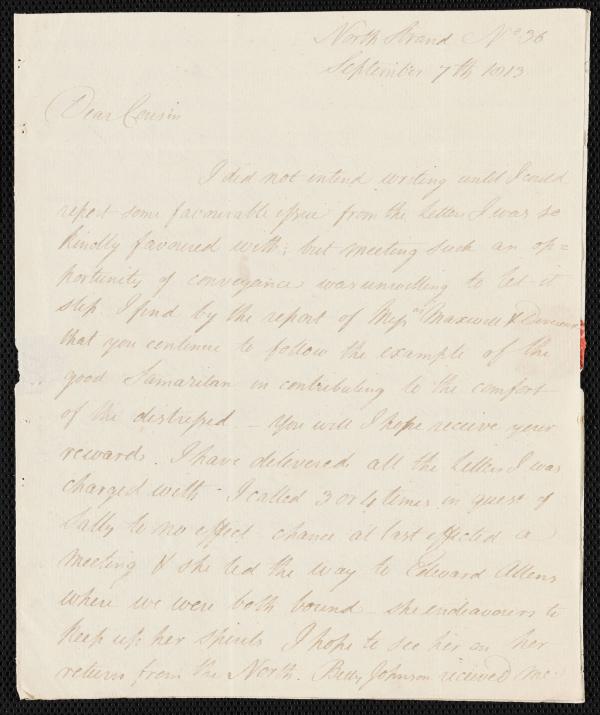 North Strand No 36
September 7th 1813
Dear Cousin
I did not intend writing until I could
report some favourable issue from the Letters I was so
kindly favoured with; but meeting such an op=
portunity of conveyance was unwilling to let it
slip I find by the report of Messrs Maxwell &
that you continue to follow the example of the
good Samaritan in contributing to the comfort
of the distressed – You will I hope receive your
reward. I have delivered all the Letters I was
charged with – I called 3 or 4 times in quest of
Sally to no effect chance at last effected a
meeting & she led the way to Edward Allens
where we were both bound – she endeavours to
keep up her spirits I hope to see her on her
return from the North. Betty Johnson received me